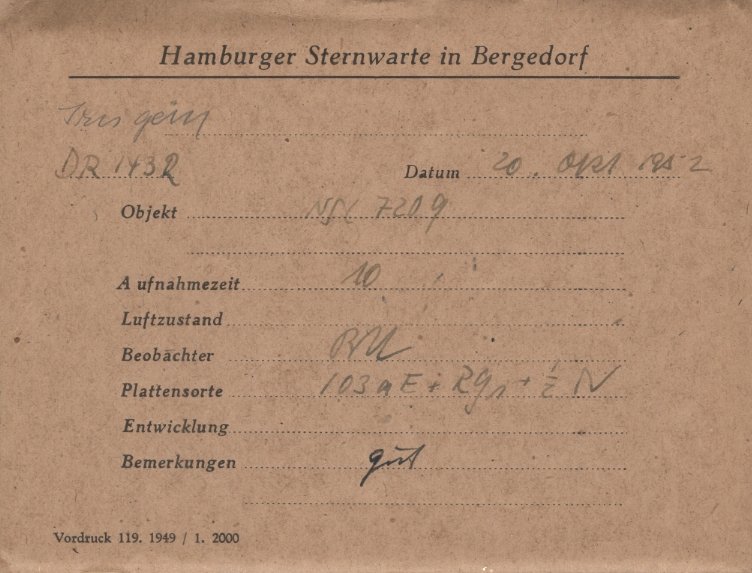 Hamburger Sternwarte in Bergedorf
DR 1432 Datum 20. Okt 1952
Objekt NGC 7209
Aufnahmezeit 10
Luftzustand
Beobachter
Plattensorte 103 a E + RG1 + ½ N
Entwicklung
Bemerkungen gut
Vordruck 119. 1949 / 1. 2000